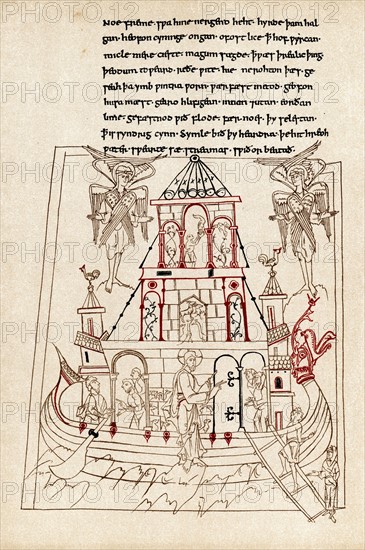 Noe fremede . sƿa hine nergend heht . hyrde þam hal
gan . heofon cyninge ongan . ofost lice ꝥ hof ƿyrcan .
micle mere cieste . magum sægde . ꝥ ƿæs þrealic þing .
þeodum toƿeard . reðe ƿite . hie ne rohton þæs . ge
seah þa ymb ƿintra ƿorn . ƿær fæst metod . geofon
husa mæst . gearo hlifigean . innan ⁊ utan . eorðan
lime . gefæstnod ƿið flode . fær noes . þy selestan .
ꝥ is syndrig cynn . Symle bið þy heardra . þe hit hreoh
ƿæter . sƿearte sæ streamas . sƿiðor beatað .
PHOTO12